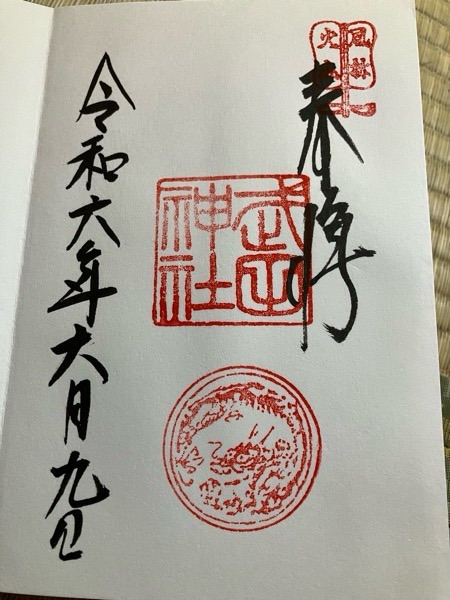 風林
火山
奉拝
武田
神社
令和六年六月九日